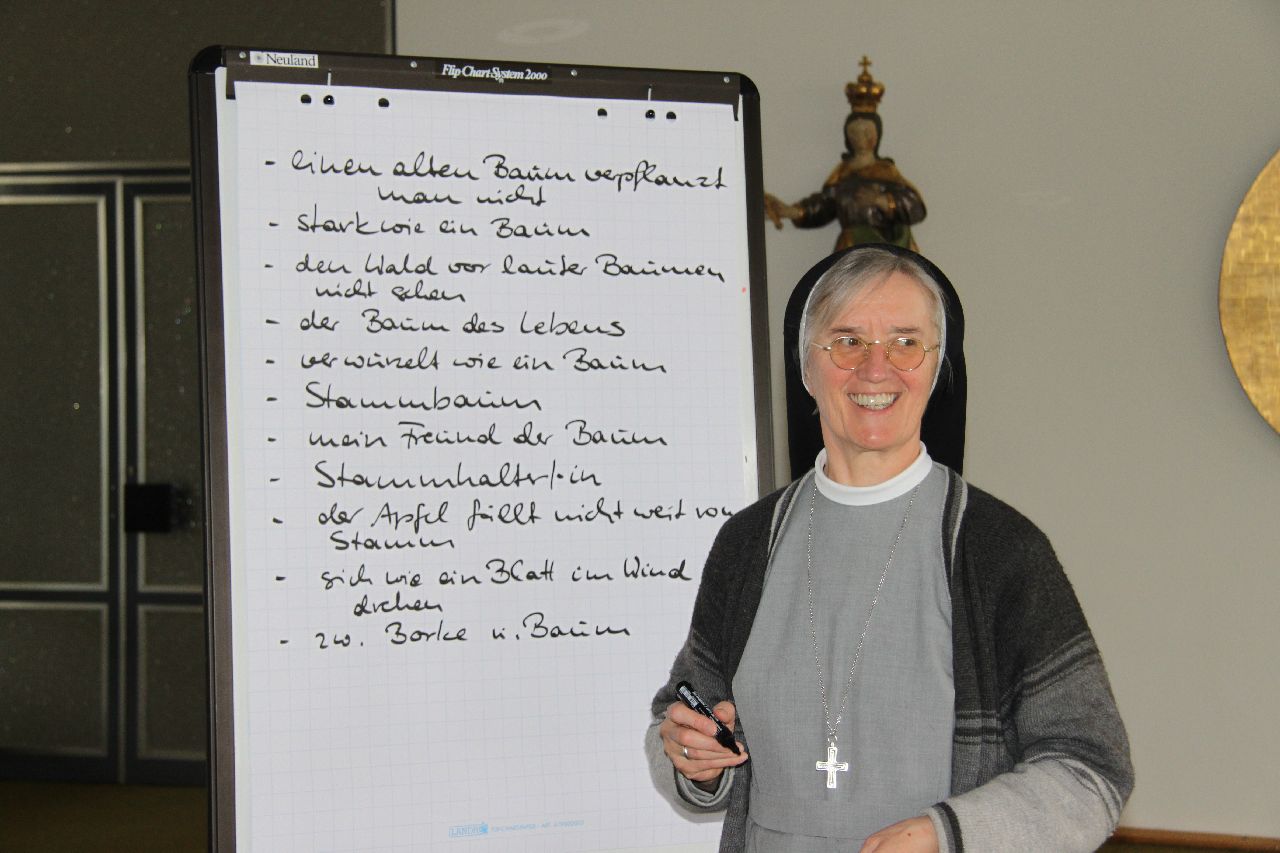 Neuland
Flip Chart System 2000
- einen alten Baum verpflanzt
man nicht
- stark wie ein Baum
- den Wald vor lauter Bäumen
nicht sehen
- der Baum des Lebens
- verwurzelt wie ein Baum
- Stammbaum
- mein Freund der Baum
- Stammhalter/-in
- der Apfel fällt nicht weit vom
Stamm
- sich wie ein Blatt im Wind
drehen
- zw. Borke u. Baum
LANDRÉ